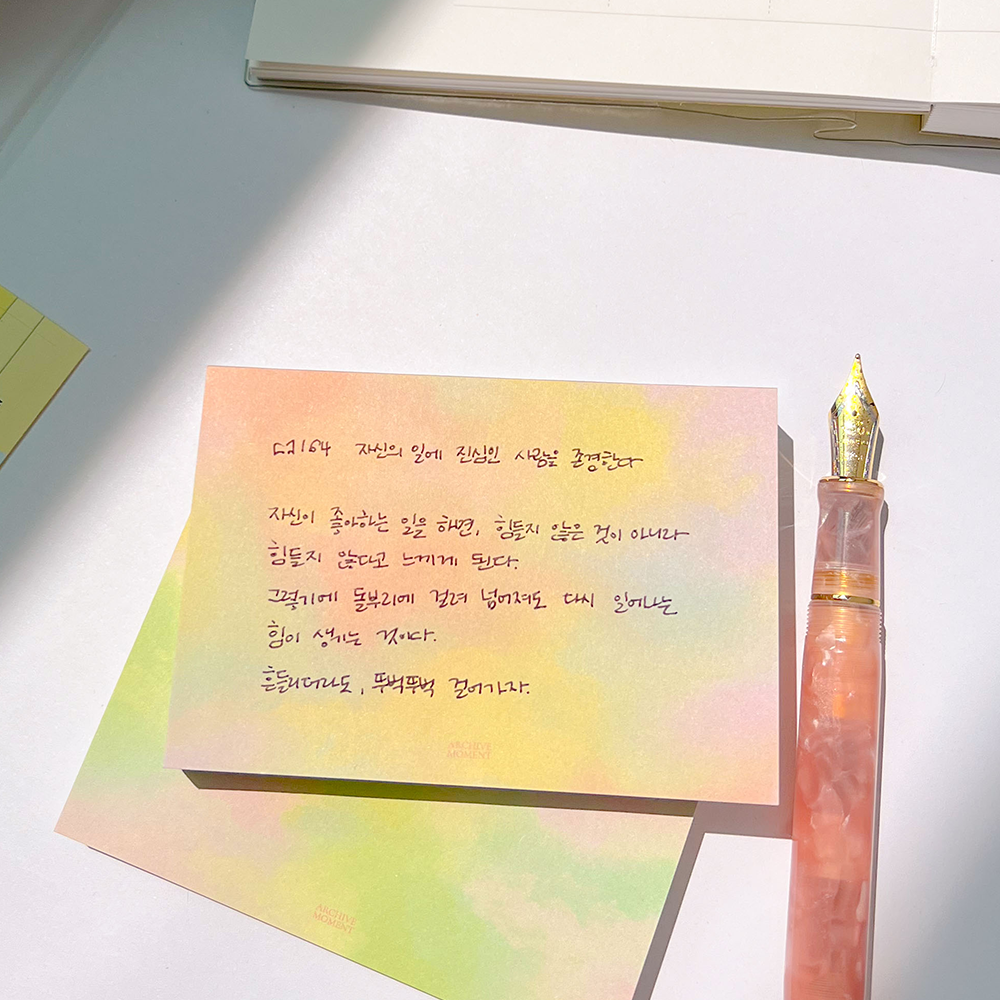 c2164 자신의 일에 진심인 사람을 존경한다
자신이 좋아하는 일을 하면, 힘들지 않은 것이 아니라
힘들지 않다고 느끼게 된다.
그렇기에 돌부리에 걸려 넘어져도 다시 일어나는
힘이 생기는 것이다.
흔들리더라도, 뚜벅뚜벅 걸어가자.
ARCHIVE
MOMENT
ARCHIVE
MOMENT